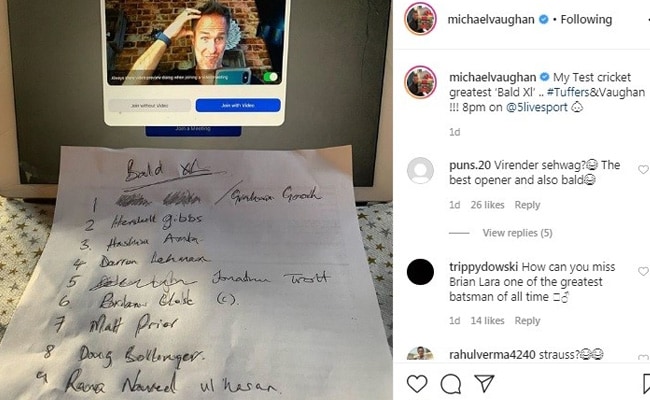 Always show video preview dialog when joining a video meeting
Join without Video
Join with Video
Join a Meeting
Bald XI
1 / Graham Gooch
2 Hershell gibbs
3 Hashim Amla
4 Darren Lehmann
5 Jonathan Trott
6 Brian Close (c).
7 Matt Prior
8 Doug Bollinger.
9 Rana Naveed ul hasan.
michaelvaughan • Following
michaelvaughan My Test cricket
greatest 'Bald XI' .. #Tuffers&Vaughan
!!! 8pm on @5livesport
1d
puns.20 Virender sehwag?😂 The
best opener and also bald😂
1d 26 likes Reply
View replies (5)
trippydowski How can you miss
Brian Lara one of the greatest
batsman of all time
1d 14 likes Reply
rahulverma4240 strauss?😂😂